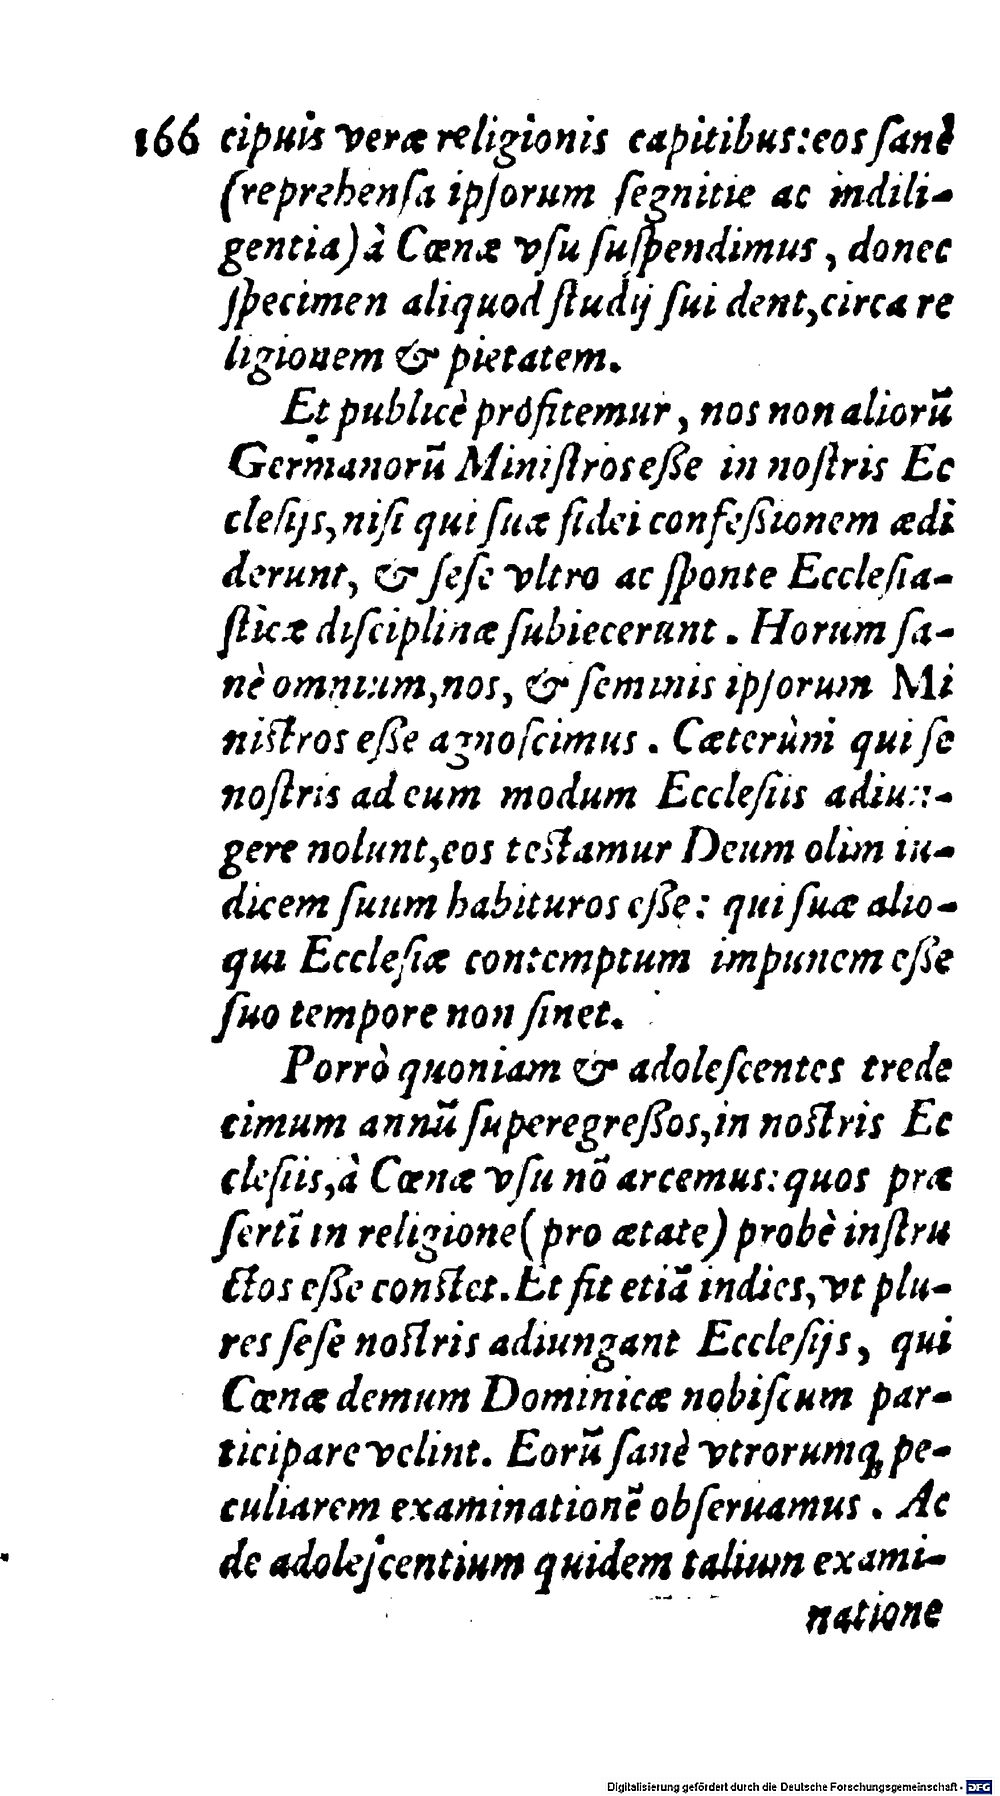 166 cipuis veræ religionis capitibus: eos ſanè
(reprehenſa ipſorum ſegnitie ac indili-
gentia) à Cœnæ vſu ſuſpendimus, donec
ſpecimen aliquod ſtudij ſui dent, circa re
ligionem & pietatem.
Et publicè profitemur, nos non aliorũ
Germanorũ Miniſtros eſſe in noſtris Ec
cleſijs, niſi qui ſuæ fidei confeſſionem ædi
derunt, & ſeſe vltro ac ſponte Eccleſia-
ſticæ diſciplinæ ſubiecerunt. Horum ſa-
nè omnium, nos, & ſeminis ipſorum Mi
niſtros eſſe agnoſcimus. Cæterùm qui ſe
noſtris ad eum modum Eccleſiis adiun-
gere nolunt, eos teſtamur Deum olim iu-
dicem ſuum habituros eſſe: qui ſuæ alio-
qui Eccleſiæ contemptum impunem eſſe
ſuo tempore non ſinet.
Porrò quoniam & adoleſcentes trede
cimum annũ ſupergreſſos, in noſtris Ec
cleſiis, à Cœnæ vſu nõ arcemus: quos præ
ſertĩ in religione (pro ætate) probè inſtru
ctos eſſe conſtet. Et fit etiã indies, vt plu-
res ſeſe noſtris adiungant Eccleſijs, qui
Cœnæ demum Dominicæ nobiſcum par-
ticipare velint. Eorũ ſanè vtrorumq; pe-
culiarem examinationẽ obſeruamus. Ac
de adoleſcentium quidem talium exami-
natione
Digitalisierung gefördert durch die Deutsche Forschungsgemeinschaft - DFG